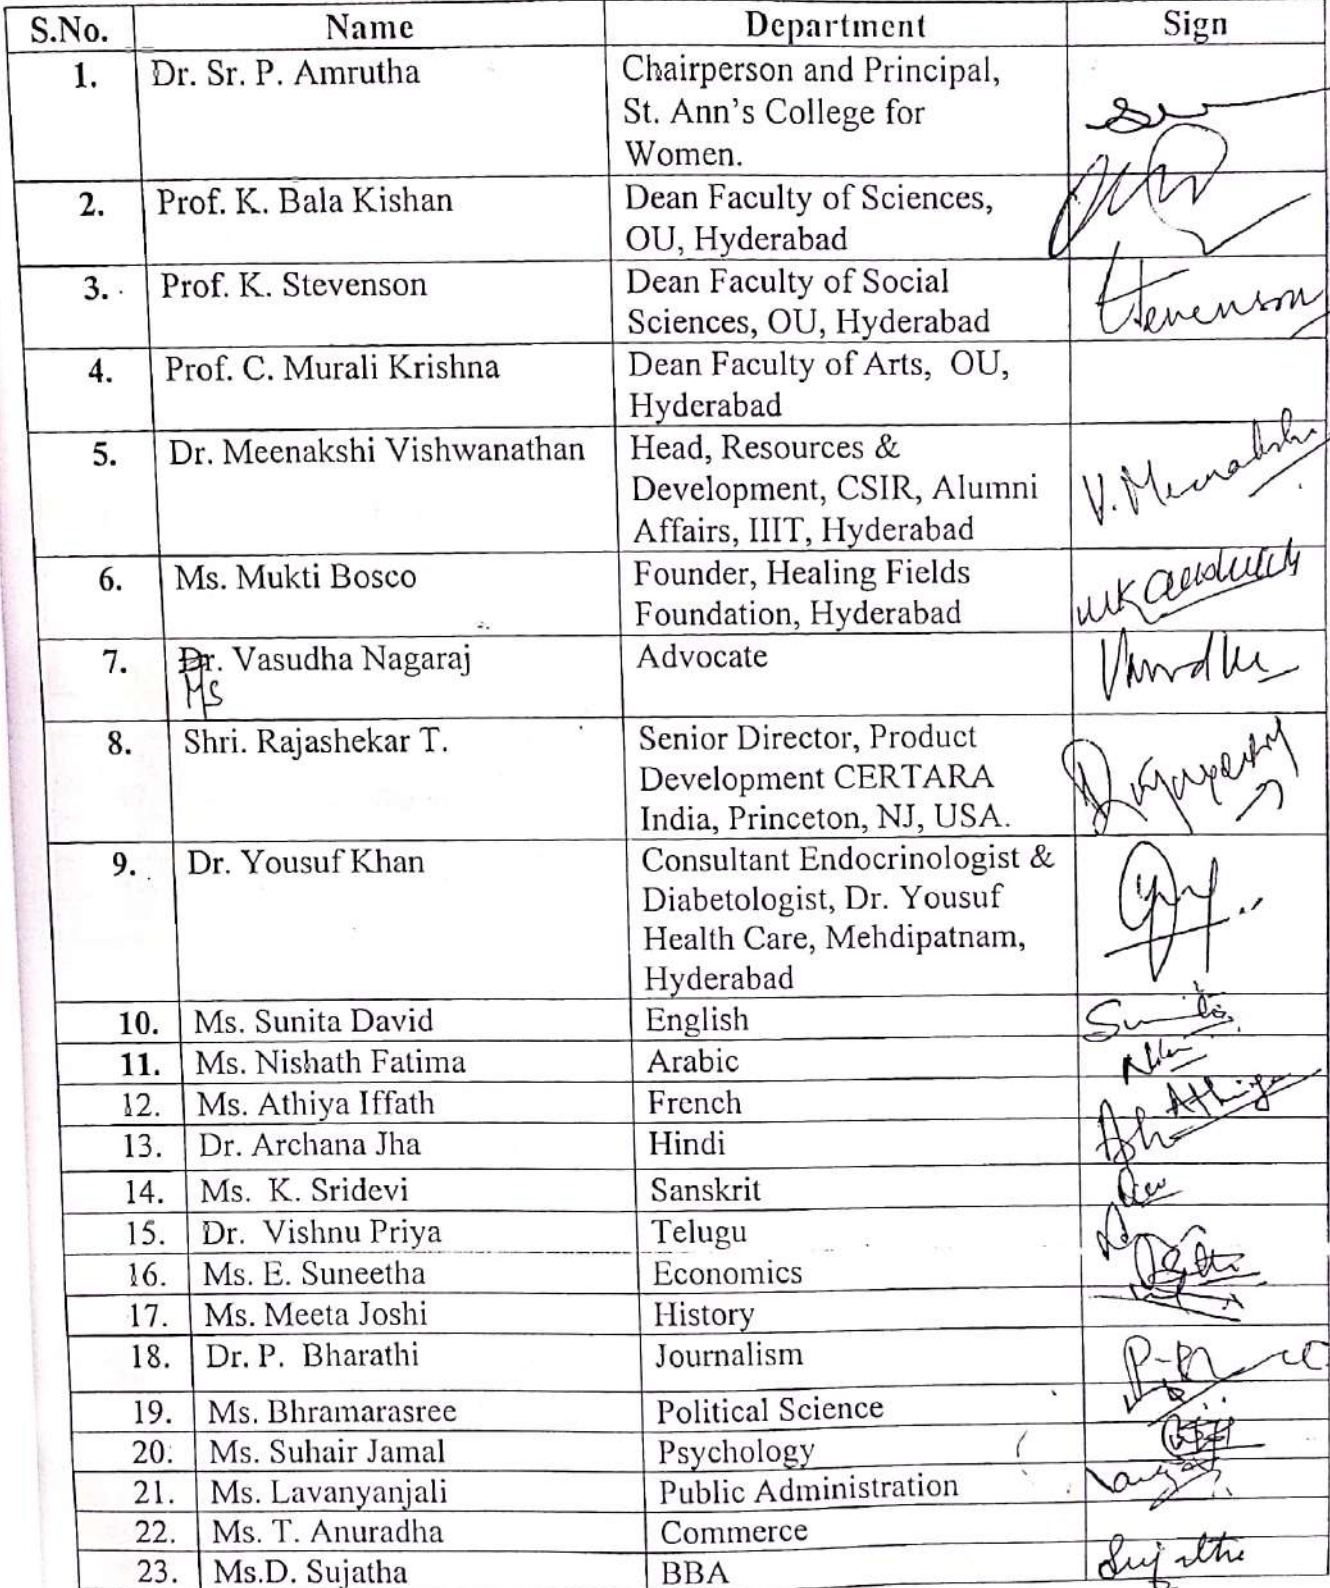 S.No. Name Department Sign
1. Dr. Sr. P. Amrutha Chairperson and Principal,
St. Ann's College for
Women.
2. Prof. K. Bala Kishan Dean Faculty of Sciences,
OU, Hyderabad
3. Prof. K. Stevenson Dean Faculty of Social Stevenson
Sciences, OU, Hyderabad
4. Prof. C. Murali Krishna Dean Faculty of Arts, OU,
Hyderabad
5. Dr. Meenakshi Vishwanathan Head, Resources & V. Meenakshi
Development, CSIR, Alumni
Affairs, IIIT, Hyderabad
6. Ms. Mukti Bosco Founder, Healing Fields
Foundation, Hyderabad
7. Dr. Vasudha Nagaraj Advocate Vasudha
Ms
8. Shri. Rajashekar T. Senior Director, Product
Development CERTARA
India, Princeton, NJ, USA.
9. Dr. Yousuf Khan Consultant Endocrinologist &
Diabetologist, Dr. Yousuf
Health Care, Mehdipatnam,
Hyderabad
10. Ms. Sunita David English Sunita
11. Ms. Nishath Fatima Arabic
12. Ms. Athiya Iffath French Athiya
13. Dr. Archana Jha Hindi
14. Ms. K. Sridevi Sanskrit
15. Dr. Vishnu Priya Telugu
16. Ms. E. Suneetha Economics
17. Ms. Meeta Joshi History
18. Dr. P. Bharathi Journalism
19. Ms. Bhramarasree Political Science
20. Ms. Suhair Jamal Psychology
21. Ms. Lavanyanjali Public Administration
22. Ms. T. Anuradha Commerce
23. Ms.D. Sujatha BBA Sujatha